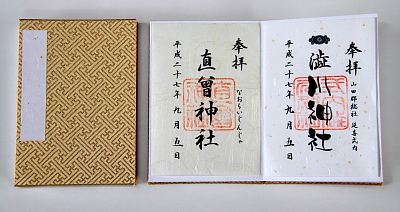 奉拝
山田郡総社 延喜式内
澁川神社
平成二十七年九月五日
奉拝
なおらいじんじゃ
直會神社
平成二十七年九月五日